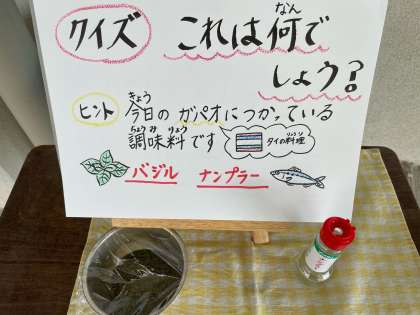 クイズ これは何で
なん
しょう?
ヒント 今日の ガパオにつかっている
きょう
調味料です タイの料理
ちょうみりょう りょうり
バジル ナンプラー